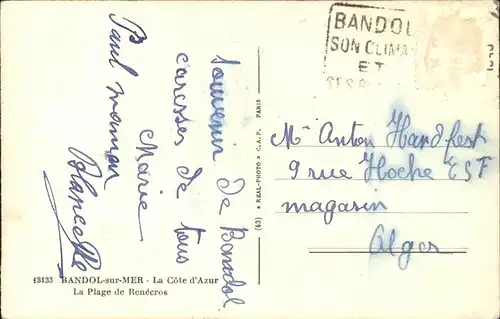 Souvenir de Bandol
caresses de tous
Marie
Paul maman
Blanchette
13133 BANDOL-sur-MER - La Côte d'Azur
La Plage de Renécros
(43) « REAL-PHOTO » C.A.P. PARIS
BANDOL
SON CLIMA
ET
SES
Mr Anton Hardfest
9 rue Hoche ESF
magasin
Alger